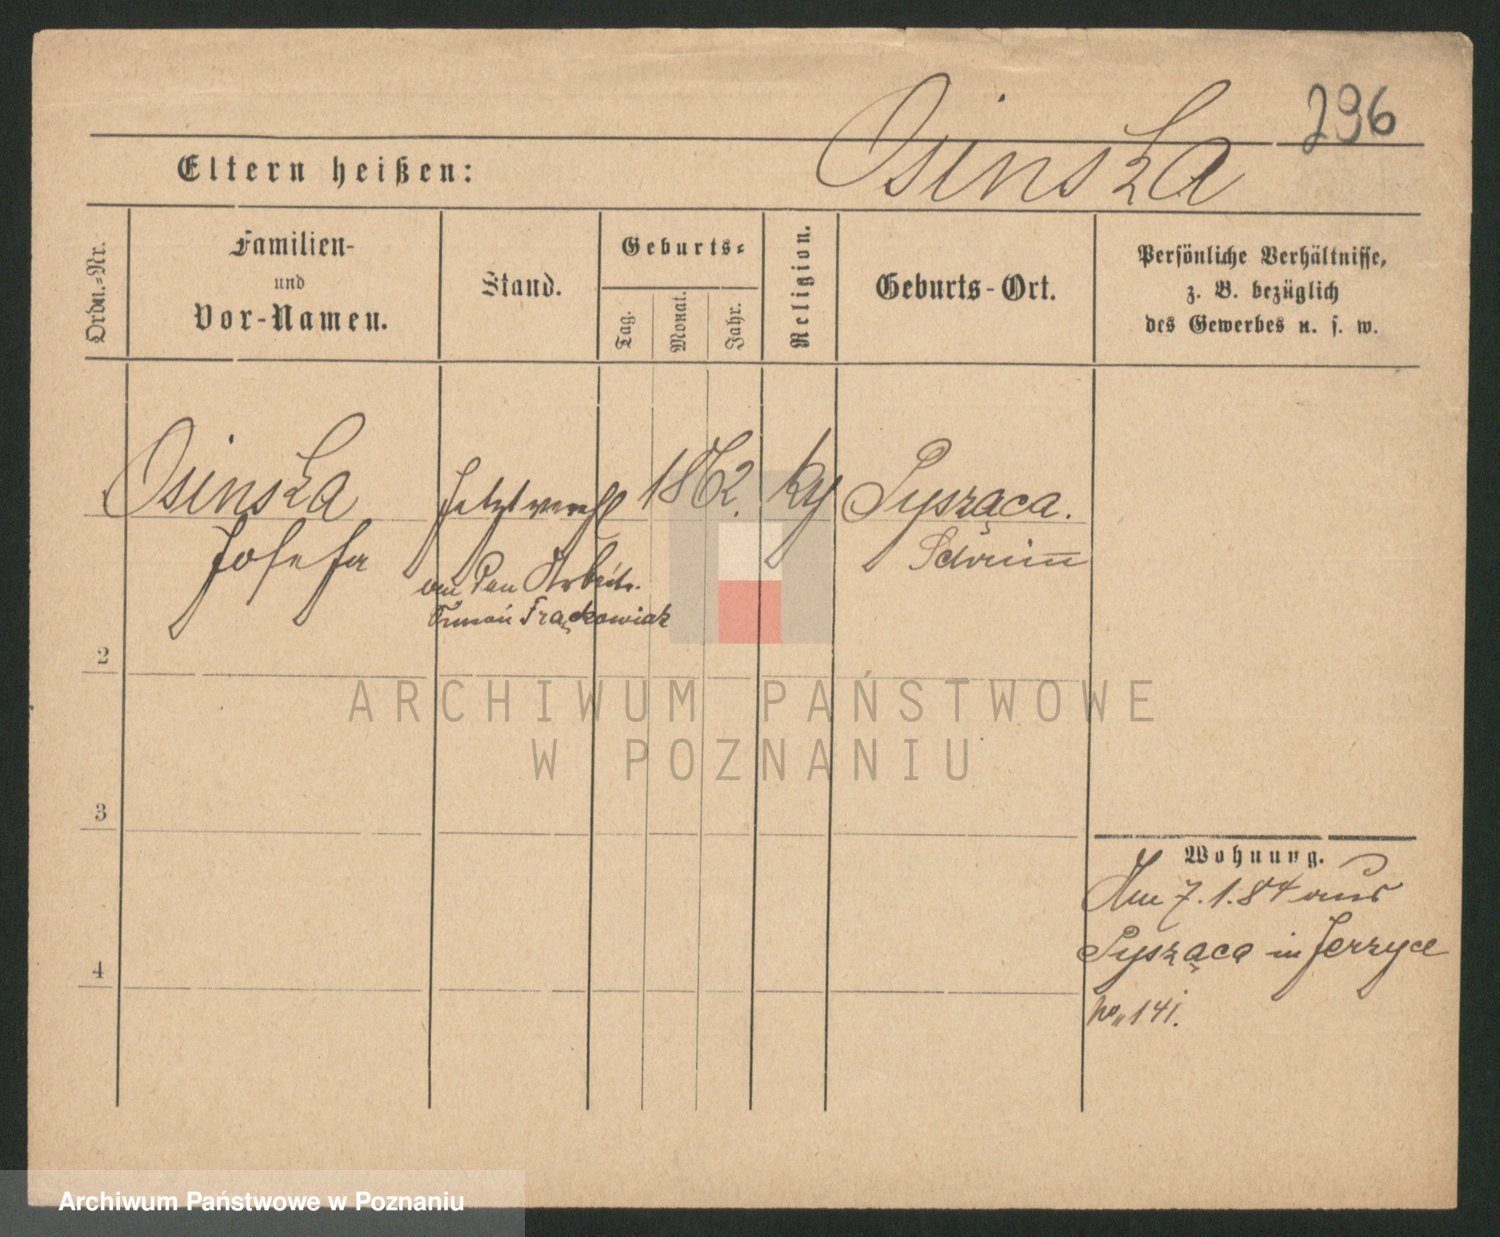 296
Osinska
Eltern heißen:
Ordn.-Nr.
Familien-
und
Vor-Namen.
Stand.
Geburts-
Tag.
Monat.
Jahr.
Religion.
Geburts-Ort.
Persönliche Verhältnisse,
z. B. bezüglich
des Gewerbes u. s. w.
Osinska
Josefa
jetzt vereh
an den Arbeitr.
Frąckowiak
1862.
Pysząca.
Schrim
2
3
4
Wohnung.
Am 7.1.84 aus
Pysząca in Jerzyce
No 141.
ARCHIWUM PAŃSTWOWE
W POZNANIU
Archiwum Państwowe w Poznaniu